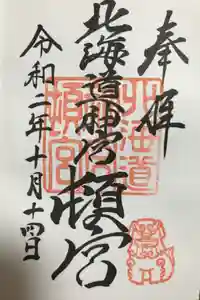 奉拝
北海道神宮頓宮
令和二年十月十四日
北海道
頓宮